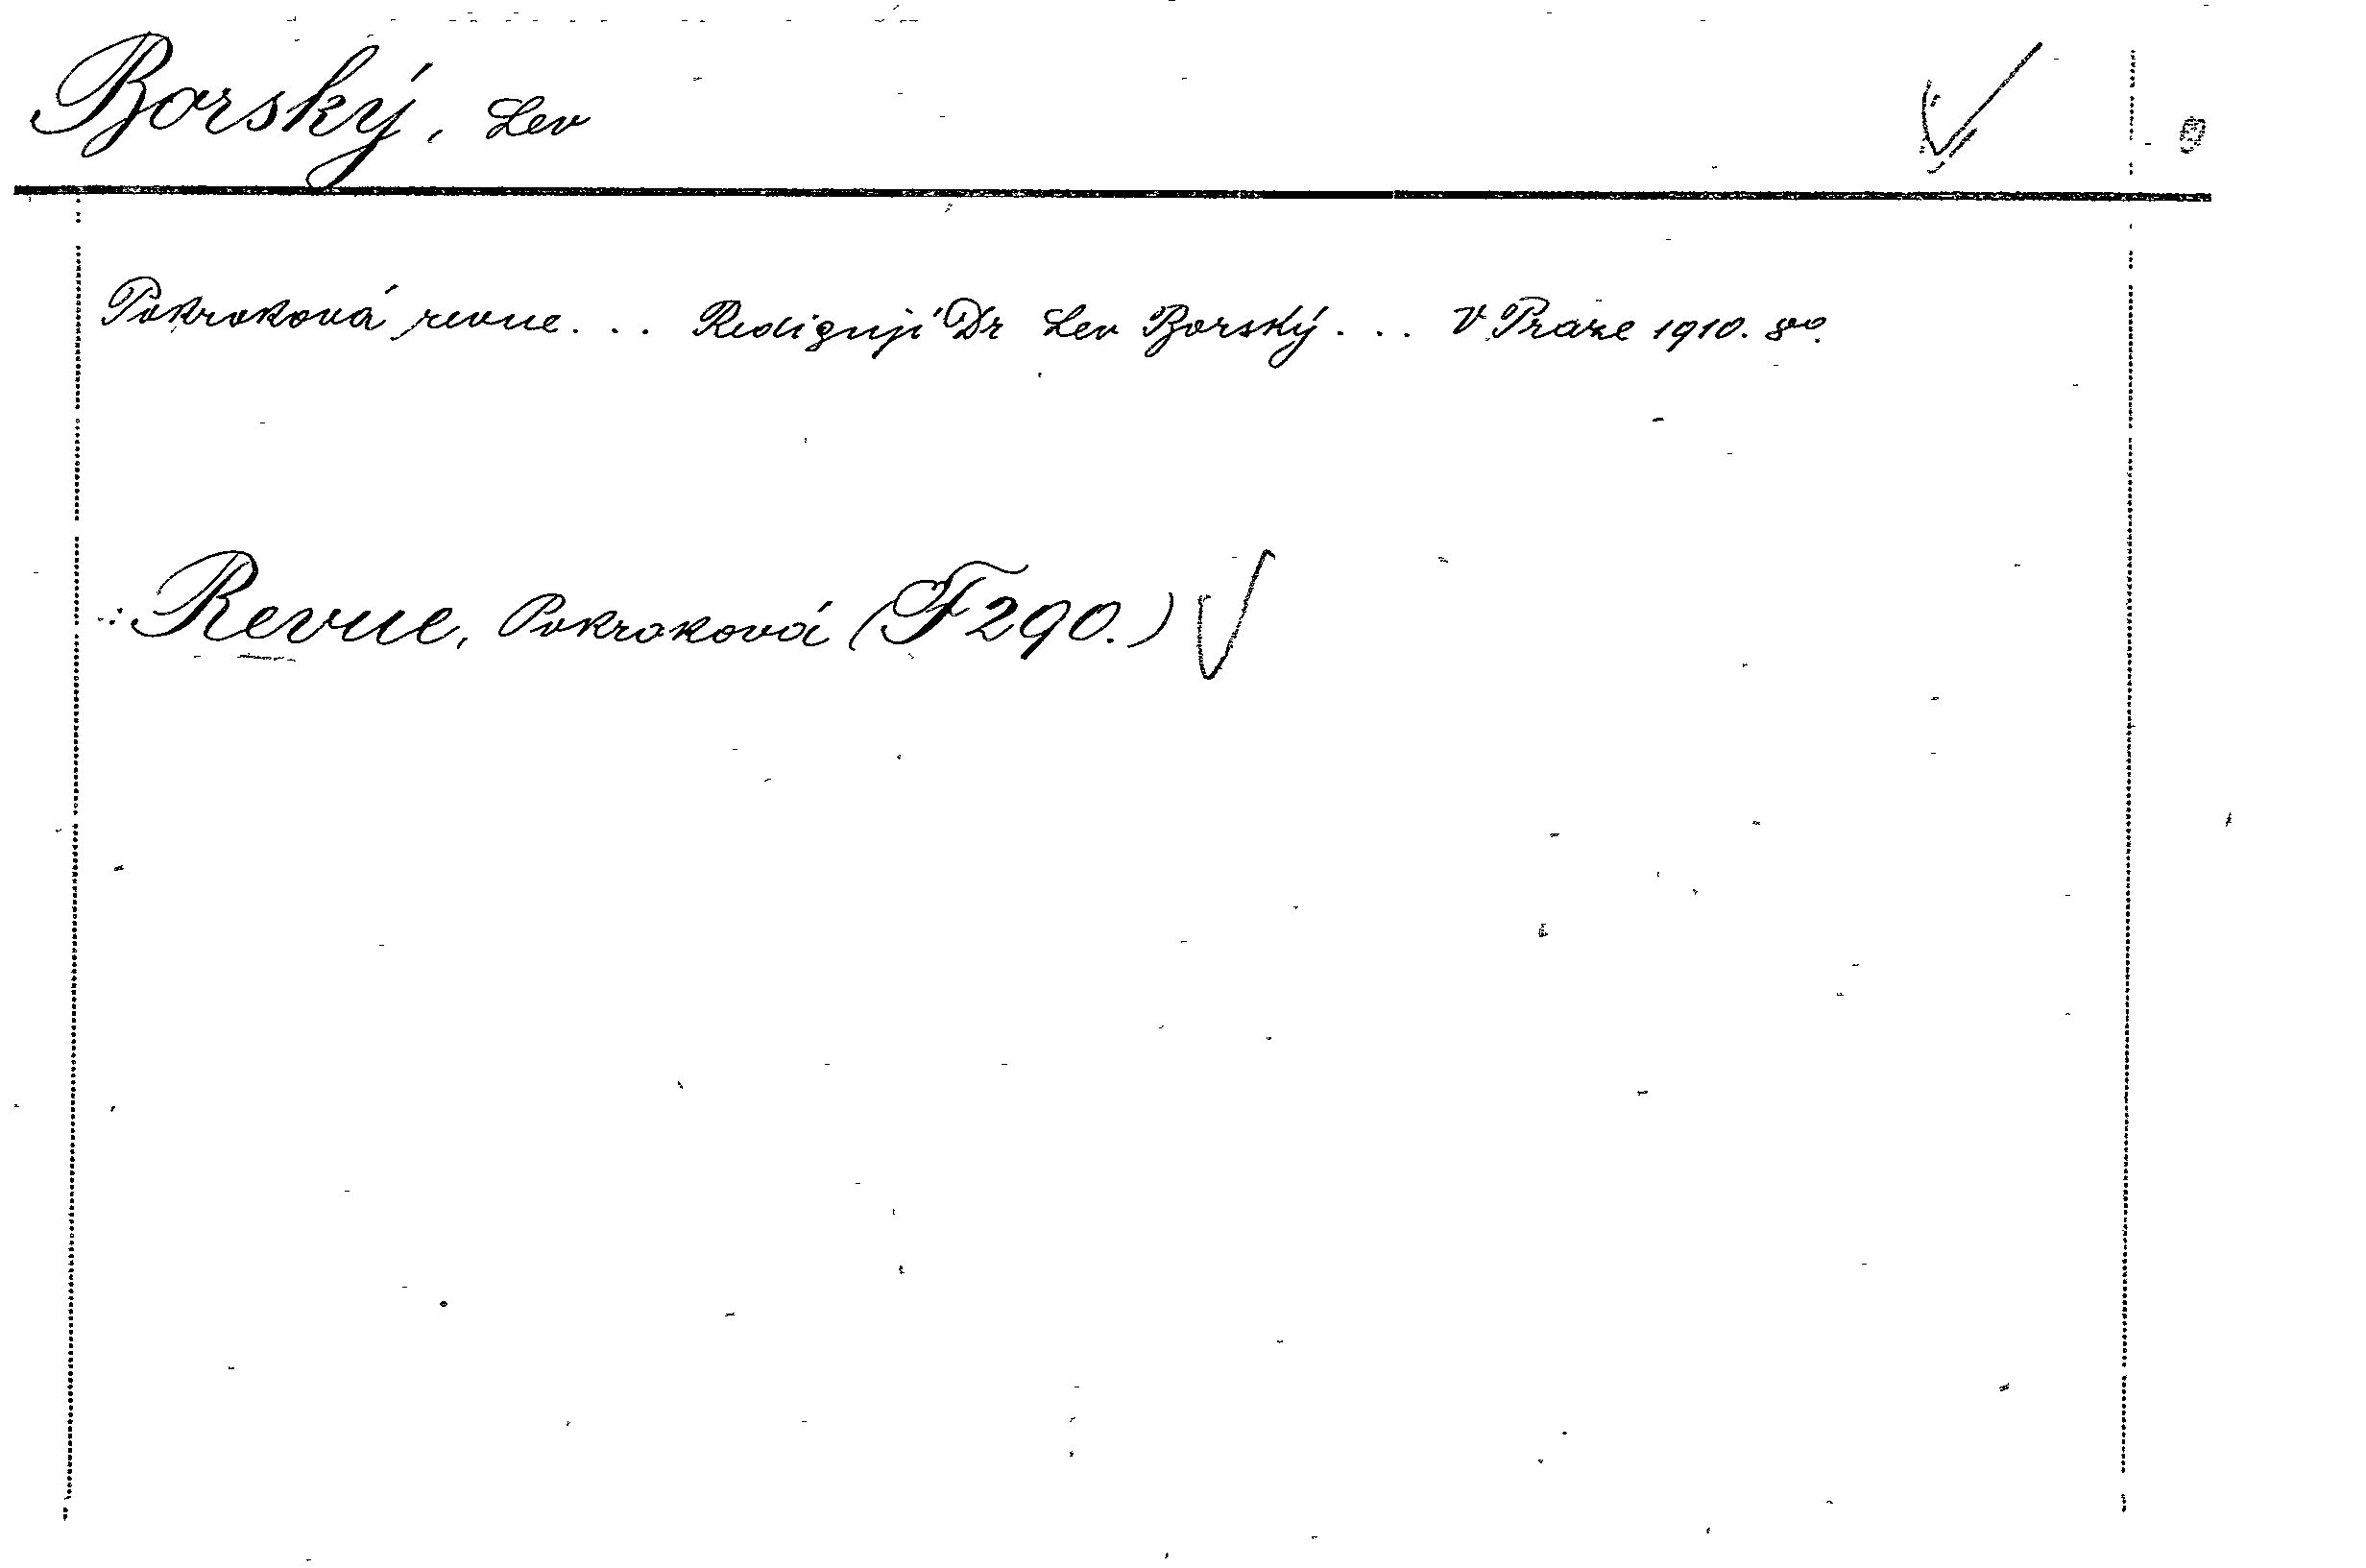 Borský, Lev
Pokroková revue... Redigují Dr Lev Borský... V Praze 1910. 8vo.
: Revue, Pokroková (F290.)